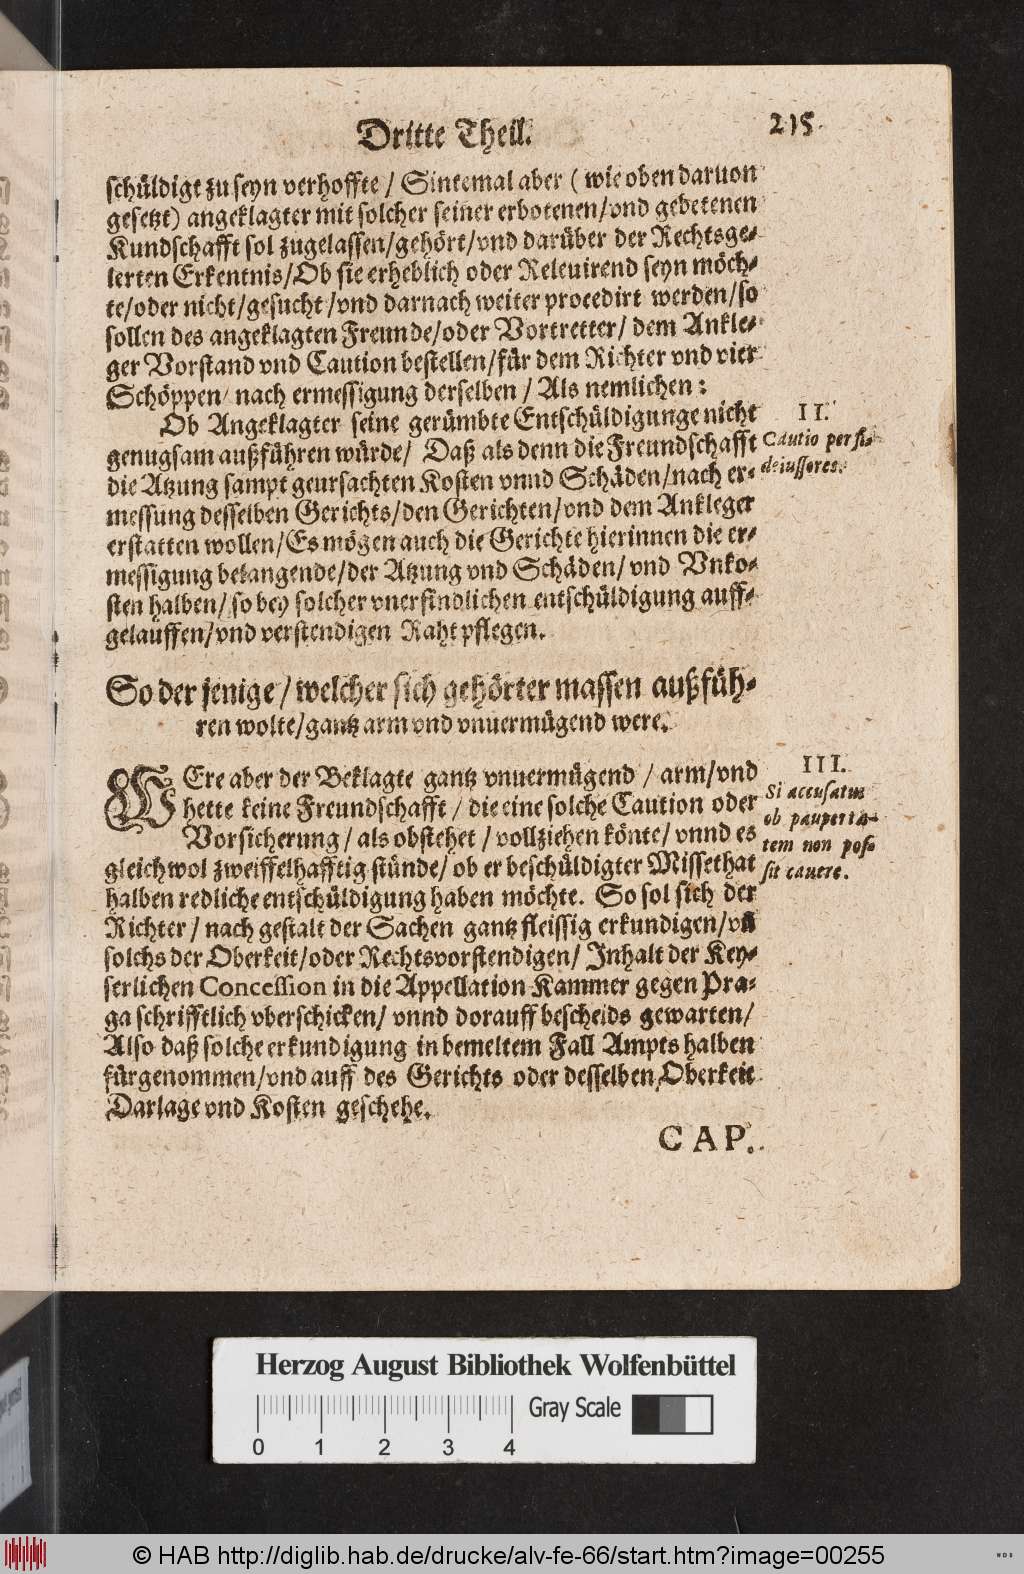 Dritte Theil. 215.
schüldigt zu seyn verhoffte / Sintemal aber ( wie oben daruon
gesetzt) angeklagter mit solcher seiner erbotenen/vnd gebetenen
Kundschafft sol zugelassen/gehört/vnd darüber der Rechtsge-
lerten Erkentnis/Ob sie erheblich oder Releuirend seyn möch-
te/oder nicht/gesucht/vnd darnach weiter procedirt werden/so
sollen des angeklagten Freunde/oder Vortretter/ dem Ankle-
ger Vorstand vnd Caution bestellen/für dem Richter vnd vier
Schöppen/ nach ermessigung derselben / Als nemlichen:
Ob Angeklagter seine gerümbte Entschüldigunge nicht
genugsam außführen würde/ Daß als denn die Freundschafft
die Atzung sampt geursachten Kosten vnnd Schäden/nach er-
messung desselben Gerichts/den Gerichten/vnd dem Ankleger
erstatten wollen/Es mögen auch die Gerichte hierinnen die er-
messigung belangende/der Atzung vnd Schäden/ vnd Vnko-
sten halben/ so bey solcher vnerfindlichen entschüldigung auff-
gelauffen/vnd verstendigen Raht pflegen.
II.
Cautio per fi-
deiussores.
So der jenige / welcher sich gehörter massen außfüh-
ren wolte/gantz arm vnd vnuermügend were.
WEre aber der Beklagte gantz vnuermügend / arm/vnd
hette keine Freundschafft / die eine solche Caution oder
Vorsicherung / als obstehet / vollziehen könte/ vnnd es
gleichwol zweiffelhafftig stünde/ ob er beschüldigter Missethat
halben redliche entschüldigung haben möchte. So sol sich der
Richter / nach gestalt der Sachen gantz fleissig erkundigen/vñ
solchs der Oberkeit/oder Rechtsvorstendigen/ Inhalt der Key-
serlichen Concession in die Appellation Kammer gegen Pra-
ga schrifftlich vberschicken/ vnnd dorauff bescheids gewarten/
Also daß solche erkundigung in bemeltem Fall Ampts halben
fürgenommen/vnd auff des Gerichts oder desselben Oberkeit
Darlage vnd Kosten geschehe.
III.
Si accusatus
ob pauperta-
tem non pos-
sit cauere.
CAP.
Herzog August Bibliothek Wolfenbüttel
0 1 2 3 4 Gray Scale
© HAB http://diglib.hab.de/drucke/alv-fe-66/start.htm?image=00255